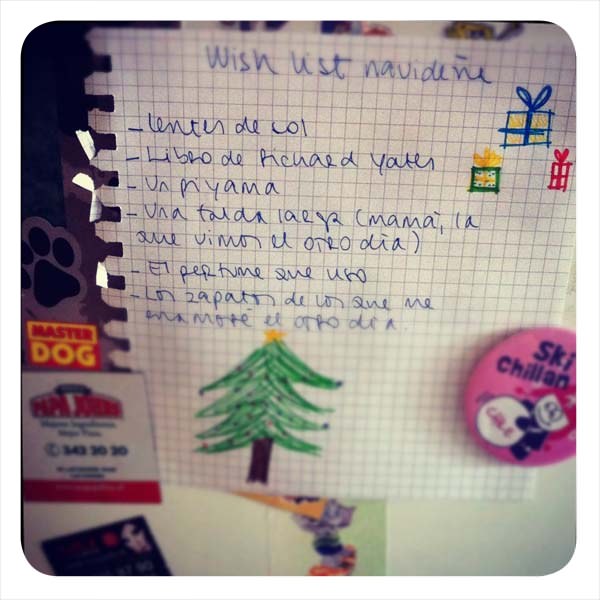 Wish list navideñe
- lentes de sol
- Libro de Richard Yates
- Un piyama
- Una falda larga (mamá, la
que vimos el otro día)
- El perfume que uso
- Los zapatos de los que me
enamoré el otro día.
MASTER
DOG
PAPA JOHN'S
Mejores Ingredientes.
Mejor Pizza.
342 20 20
Ski
Chillan